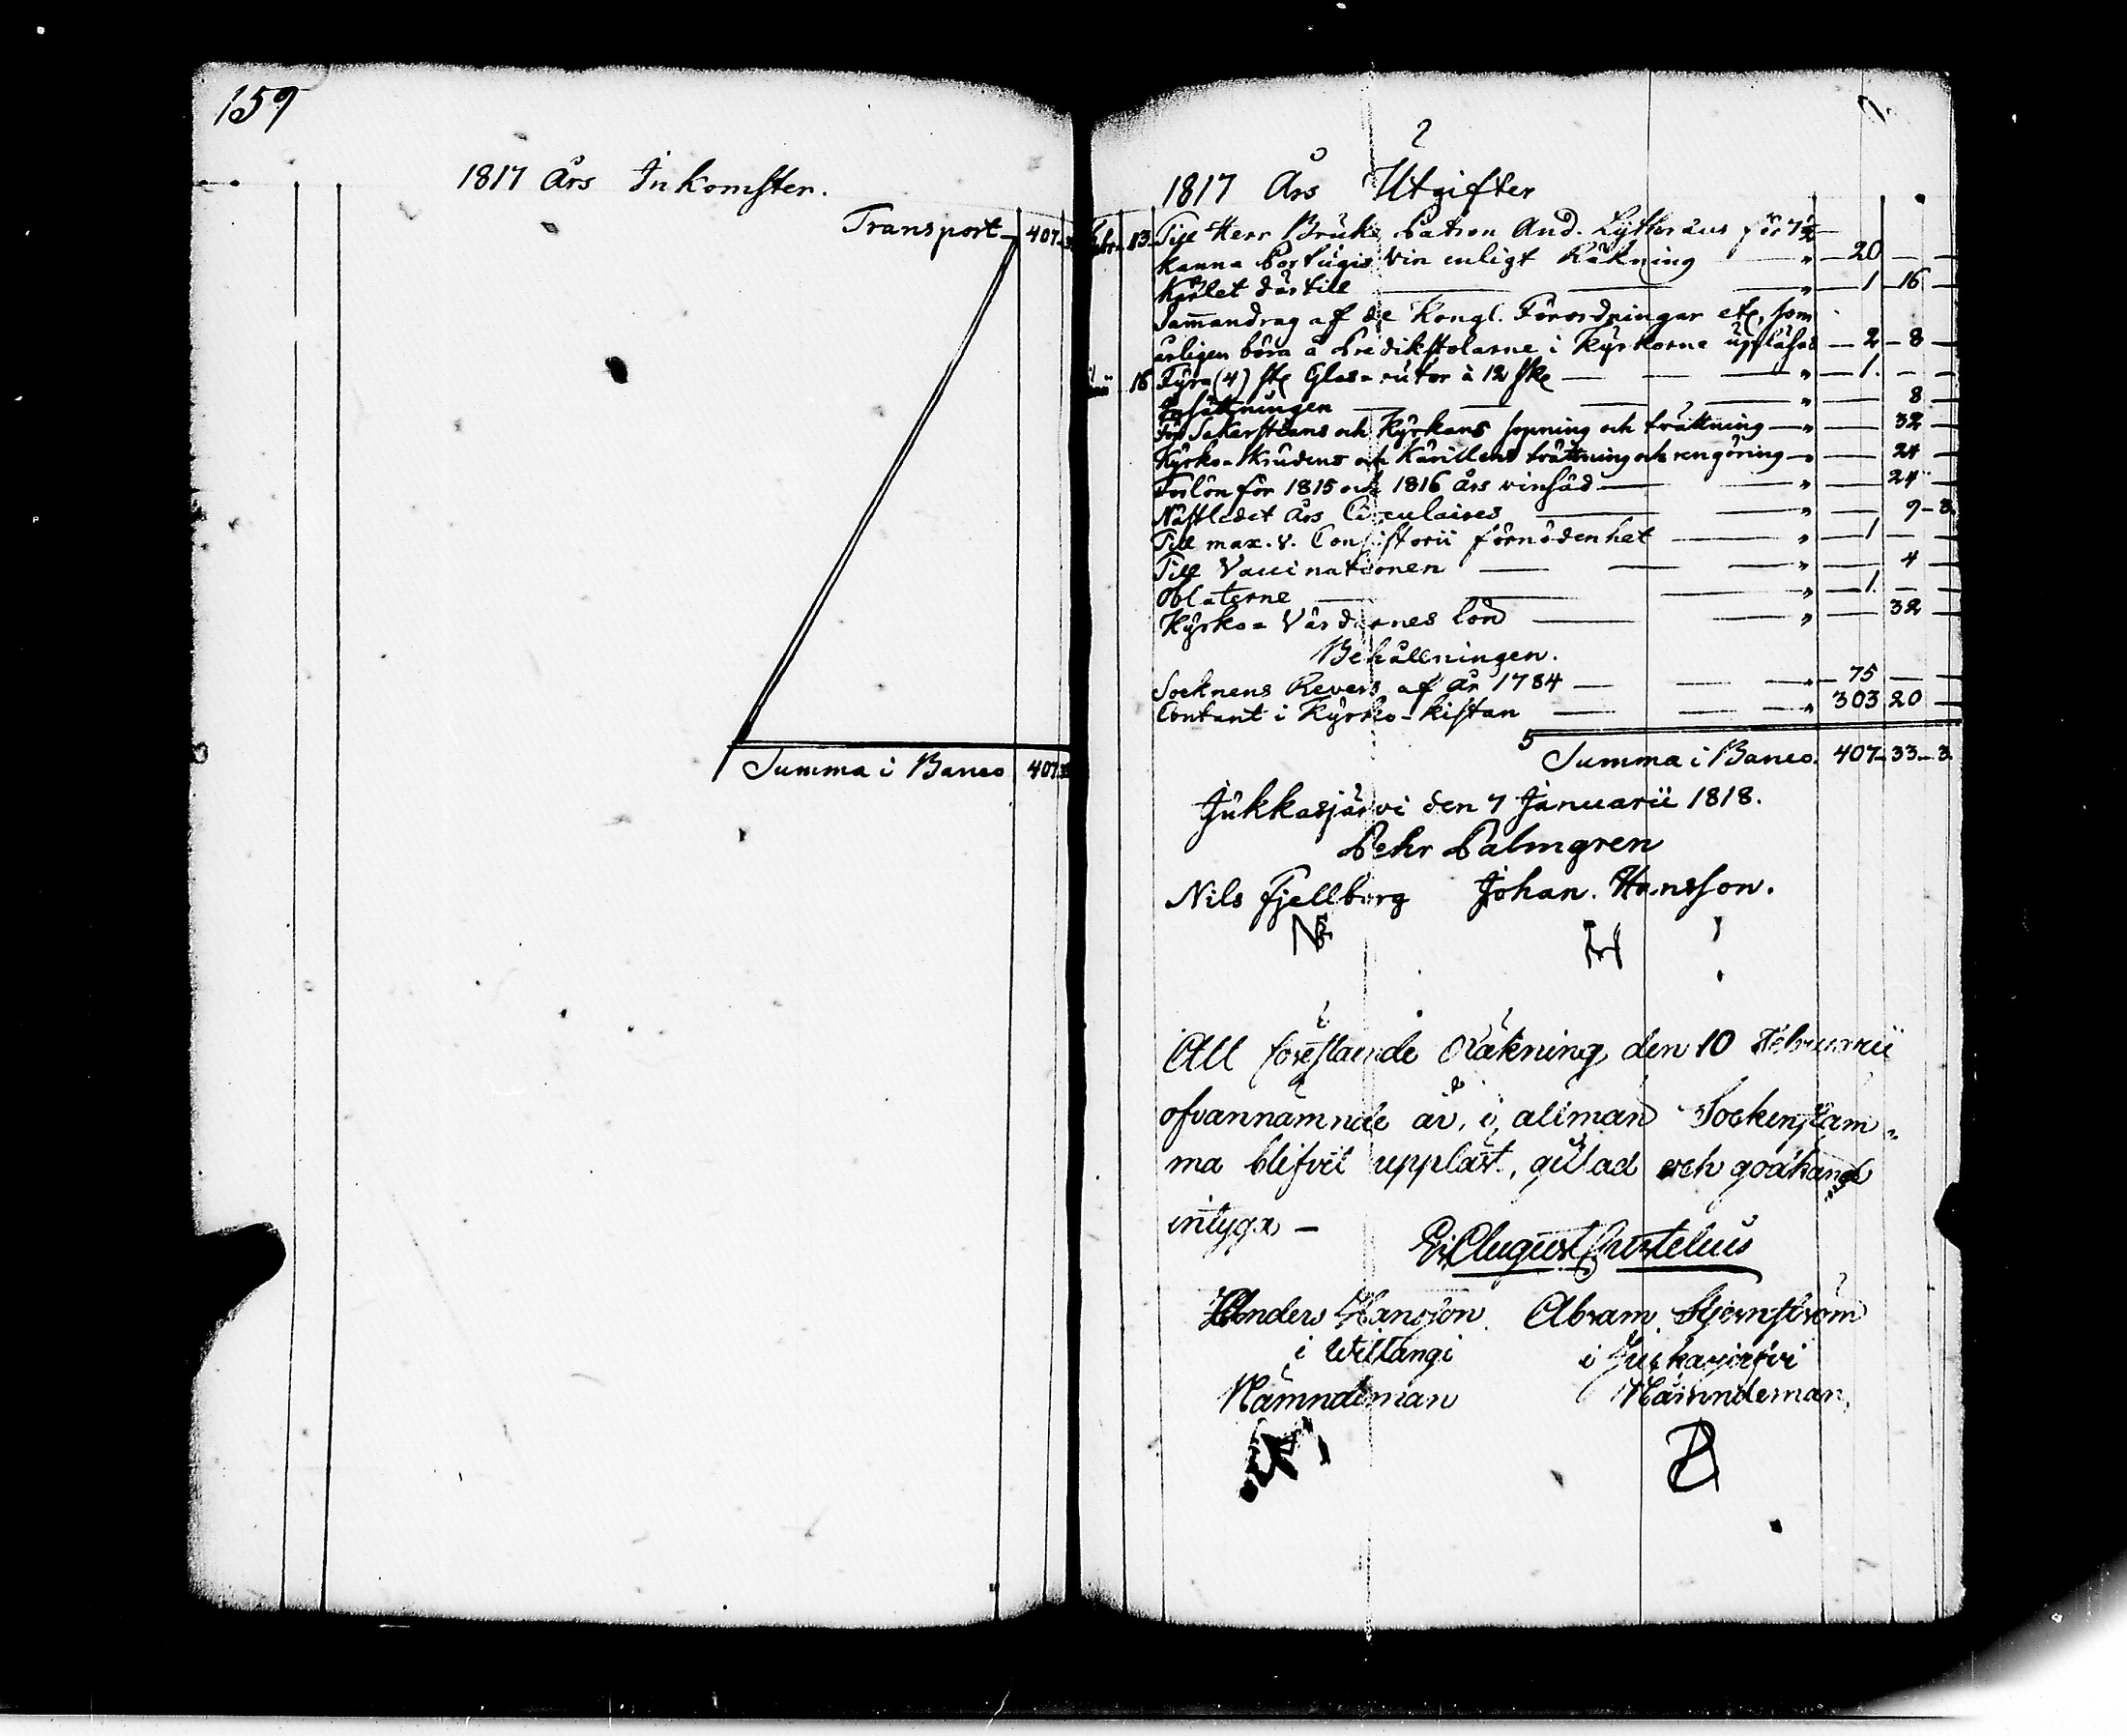 159
1817 Års Inkomster.
Transport 407
Summa i Banco 407
1817 Års Utgifter
13 Till Herr Bruks Patron And. för 7 1/2
kanna Portugis Vin enligt Räkning " 20 — —
Kärlet därtill " 1 16 —
Sammandrag af de Kongl. Förordningar etc, som
årligen böra å Predikstolarne i Kyrkorne uppläsas 2 8 —
16 Fyra (4) st Glas-rutor à 12 sk " 1. — —
Insättningen " — 8 —
För Sakerstians och Kyrkans sopning och tvättning " — 32 —
Kyrko-Skrudens och Kärillens tvättning och rengöring " — 24 —
Forlön för 1815 och 1816 års vinsäd " — 24 —
Nästledet Års Circulaires " — 9 3.
Till max. v. Consistorii förnödenhet " 1 — —
Till Vaccinationen " — 4 —
Oblaterne " 1. — —
Kyrko-Värdarnes lön " — 32 —
Behållningen.
Socknens Revers af År 1784 " 75 — —
Contant i Kyrko-kistan " 303 20 —
Summa i Banco. 407 33 3.
Jukkasjärvi den 7 Januarii 1818.
Pehr Palmgren
Nils Fjellborg Johan. Hansson.
Att föreståénde Räkning den 10 Februarii
ofvannämnde år, i allmän Sockenstäm-
ma blifvit uppläst, gillad och godkänd
intyga —
August
Anders Hansson Abram Stjernström
i Wittangi i Juckasjerfvi
Nämndeman Nämndeman